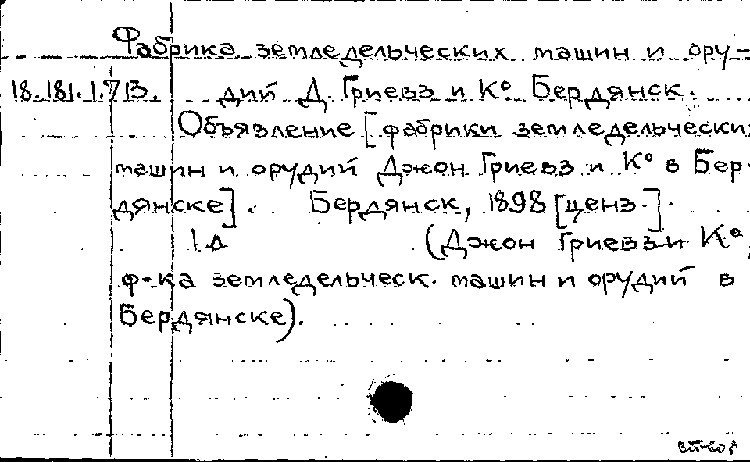 Фабрика земледельческих машин и ору-
18.181.1.713. дий Д. Гриевз и К° Бердянск.
Объявление [фабрики земледельчески
машин и орудий Джон Гриевз и К° в Бер-
дянске]. Бердянск, 1898 [ценз.].
1 л (Джон Гриевз и К°,
ф-ка земледельческ. машин и орудий в
Бердянске).